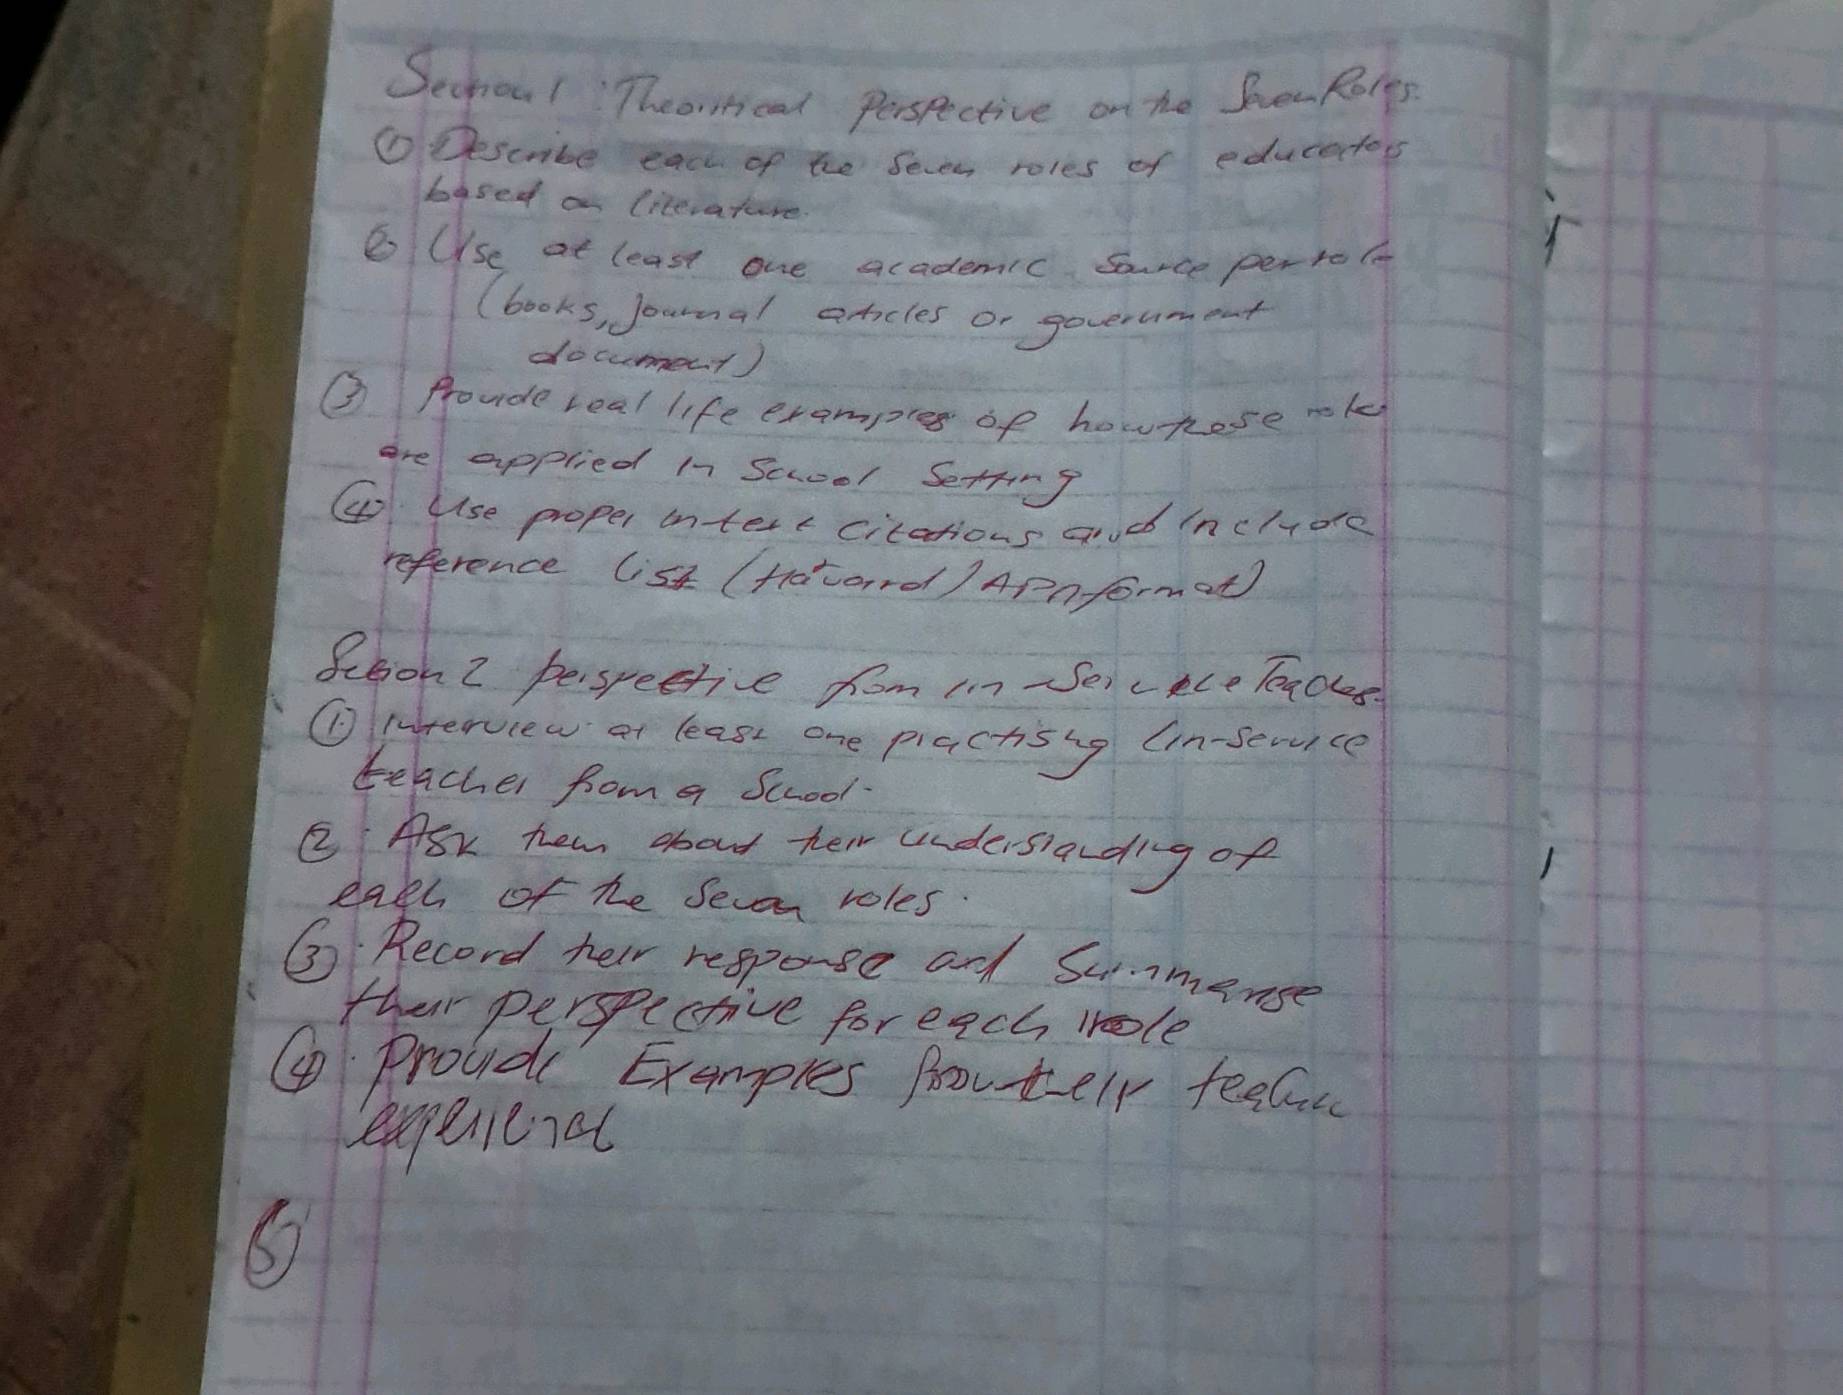 Section 1 : Theoritical Perspective on the Seven Roles.
① Describe each of the Seven roles of educators
based on literature.
② Use at least one academic Source per role
(books, journal articles or government
document)
③ Provide real life examples of how these role
are applied in School Setting
④ Use proper in text citations and include
reference list (Havard) APA format)
Section 2 perspective from in-Service Teacher.
① Interview at least one practising (in-service
teacher from a School.
② Ask them about their understanding of
each of the Seven roles.
③ Record their response and Summarise
their perspective for each role
④ Provide Examples from their
⑤